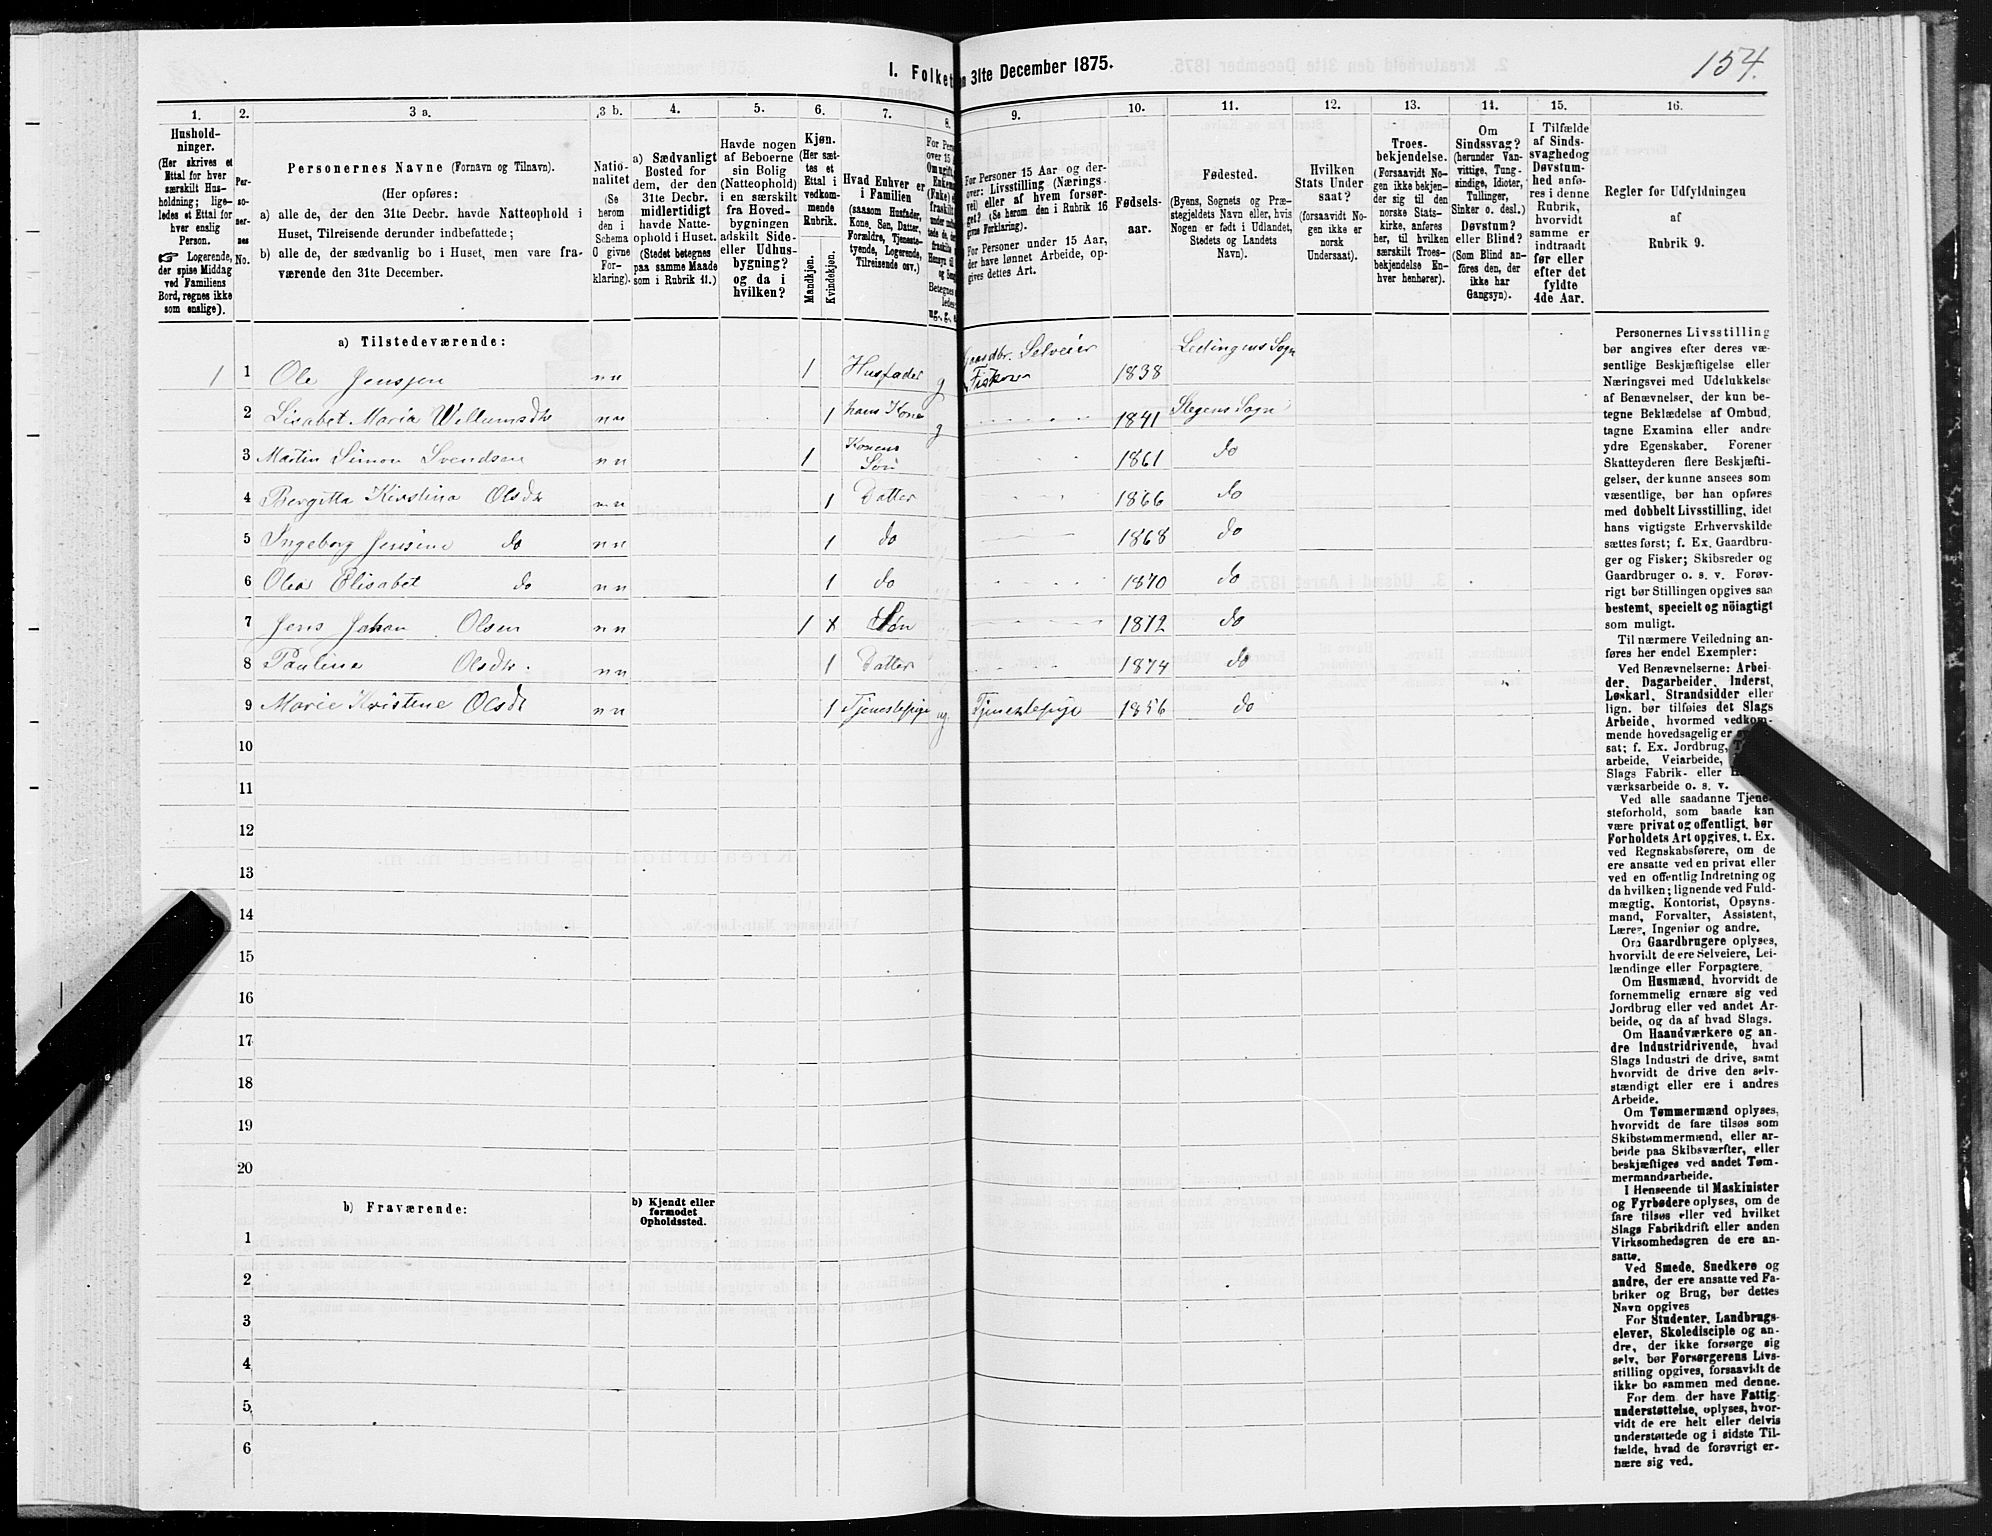 154.
I. Folket
n 31te December 1875.
1.
2.
3 a.
3 b.
4.
5.
6.
7.
8.
9.
10.
11.
12.
13.
14.
15.
16.
Hushold-
ninger.
(Her skrives et
Ettal for hver
særskilt Hus-
holdning; lige-
ledes et Ettal for
hver enslig
Person.
☞ Logerende,
der spise Middag
ved Familiens
Bord, regnes ikke
som enslige).
Per-
so-
ner-
nes
No.
Personernes Navne (Fornavn og Tilnavn).
(Her opføres:
a) alle de, der den 31te Decbr. havde Natteophold i
Huset, Tilreisende derunder indbefattede;
b) alle de, der sædvanlig bo i Huset, men vare fra-
værende den 31te December.
Natio-
nalitet
(Se
herom
den i
Schema
O givne
For-
klaring).
a) Sædvanligt
Bosted for
dem, der den
31te Decbr.
midlertidigt
havde Natte-
ophold i Huset.
(Stedet betegnes
paa samme Maade
som i Rubrik 11.)
Havde nogen
af Beboerne
sin Bolig
(Natteophold)
i en særskilt
fra Hoved-
bygningen
adskilt Side-
eller Udhus-
bygning?
og da i
hvilken?
Kjøn.
(Her sæt-
tes et
Ettal i
vedkom-
mende
Rubrik.
Mandkjøn.
Kvindekjøn.
Hvad Enhver er
i Familien
(saasom Husfader,
Kone, Søn, Datter,
Forældre, Tjeneste-
tyende, Logerende,
Tilreisende osv.)
For Personer 15 Aar og der-
over: Livsstilling (Nærings-
vei) eller af hvem forsør-
get? (Se herom den i Rubrik 16
givne Forklaring).
For Personer under 15 Aar,
der have lønnet Arbeide, op-
gives dettes Art.
Fødsels-
aar.
Fødested.
(Byens, Sognets og Præ-
stegjeldets Navn eller, hvis
Nogen er født i Udlandet,
Stedets og Landets
Navn).
Hvilken
Stats Under
saat?
(forsaavidt No-
gen ikke er
norsk
Undersaat).
Troes-
bekjendelse.
(Forsaavidt No-
gen ikke bekjen-
der sig til den
norske Stats-
kirke, anføres
her, til hvilken
særskilt Troes-
bekjendelse En-
hver henhører).
Om
Sindssvag?
(herunder Van-
vittige, Tung-
sindige, Idioter,
Tullinger,
Sinker o. desl.)
Døvstum?
eller Blind?
(Som Blind an-
føres den, der
ikke har
Gangsyn).
I Tilfælde
af Sinds-
svaghed og
Døvstum-
hed anfø-
res i denne
Rubrik,
hvorvidt
samme er
indtraadt
før eller
efter det
fyldte
4de Aar.
Regler for Udfyldningen
af
Rubrik 9.
a) Tilstedeværende:
1 1 Ole Jenssen nn 1 Husfader g Gaardbr. Selveier Fisker 1838 Lødingens Sogn
2 Lisabet Maria Willumsdtr nn 1 hans Kone g 1841 Stegens Sogn
3 Martin Simon Svendsen nn 1 Konens Søn 1861 do
4 Bergitta Kirstina Olsdtr nn 1 Datter 1866 do
5 Ingeborg Jensine do nn 1 do 1868 do
6 Olea Elisabet do nn 1 do 1870 do
7 Jens Johan Olsen nn 1 Søn 1872 do
8 Pauline Olsdtr. nn 1 Datter 1874 do
9 Marie Kristine Olsdt nn 1 Tjenestepige ug Tjenestepige 1856 do
10
11
12
13
14
15
16
17
18
19
20
b) Fraværende:
b) Kjendt eller
formodet
Opholdssted.
1
2
3
4
5
6
Personernes Livsstilling
bør angives efter deres væ-
sentlige Beskjæftigelse eller
Næringsvei med Udelukkelse
af Benævnelser, der kun be-
tegne Beklædelse af Ombud,
tagne Examina eller andre
ydre Egenskaber. Forener
Skatteyderen flere Beskjæfti-
gelser, der kunne ansees som
væsentlige, bør han opføres
med dobbelt Livsstilling, idet
hans vigtigste Erhvervskilde
sættes først; f. Ex. Gaardbru-
ger og Fisker; Skibsreder og
Gaardbruger o. s. v. Forøv-
rigt bør Stillingen opgives saa
bestemt, specielt og nöiagtigt
som muligt.
Til nærmere Veiledning an-
føres her endel Exempler:
Ved Benævnelserne: Arbei-
der, Dagarbeider, Inderst,
Løskarl, Strandsidder eller
lign. bør tilføies det Slags
Arbeide, hvormed vedkom-
mende hovedsagelig er
sat; f. Ex. Jordbrug,
arbeide, Veiarbeide,
Slags Fabrik- eller
værksarbeide o. s. v.
Ved alle saadanne Tjene-
steforhold, som baade kan
være privat og offentligt, bør
Forholdets Art opgives, t. Ex.
ved Regnskabsførere, om de
ere ansatte ved en privat eller
ved en offentlig Indretning og
da hvilken; lignende ved Fuld-
mægtig, Kontorist, Opsyns-
mand, Forvalter, Assistent,
Lærer, Ingeniør og andre.
Om Gaardbrugere oplyses,
hvorvidt de ere Selveiere, Lei-
lændinge eller Forpagtere.
Om Husmænd, hvorvidt de
fornemmelig ernære sig ved
Jordbrug eller ved andet Ar-
beide, og da af hvad Slags.
Om Haandværkere og an-
dre Industridrivende, hvad
Slags Industri de drive, samt
hvorvidt de drive den selv-
stændigt eller ere i andres
Arbeide.
Om Tømmermænd oplyses,
hvorvidt de fare tilsøs som
Skibstømmermænd, eller ar-
beide paa Skibsværfter, eller
beskjæftiges ved andet Tøm-
mermandsarbeide.
I Henseende til Maskinister
og Fyrbødere oplyses, om de
fare tilsøs eller ved hvilket
Slags Fabrikdrift eller anden
Virksomhedsgren de ere an-
satte.
Ved Smede, Snedkere og
andre, der ere ansatte ved Fa-
briker og Brug, bør dettes
Navn opgives
For Studenter, Landbrugs-
elever, Skoledisciple og an-
dre, der ikke forsørge sig
selv, bør Forsørgerens Livs-
stilling opgives, forsaavidt de
ikke bo sammen med denne.
For dem, der have Fattig-
understøttelse, oplyses, hvor-
vidt de ere helt eller delvis
understøttede og i sidste Til-
fælde, hvad de forøvrigt er-
nære sig ved.